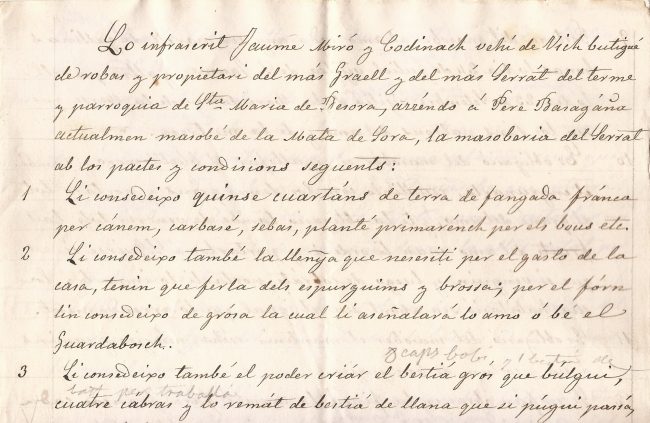 Lo infrascrit Jaume Miró y Codinach vehí de Vich butigué
de robas y propietari del más Graell y del más Serrát del terme
y parroquia de Sta Maria de Besora, arréndo á Pere Basagáña
actualmen masobé de la Mata de Sora, la masoberia del Serrat
ab los pactes y condisions seguents:
1 Li consedeixo quinse cuartáns de terra de fangada fránca
per cánem, carbasé, sebas, planté primarénch per els bous etc.
2 Li consedeixo també la lleñya que nesesiti per el gasto de la
casa, tenin que ferla dels espurguims y brossa; per el fórn
lin consedeixo de grósa la cual li aseñalará lo amo ó be el
Guardabosch.
caps bobi y 1 bestia de
3 Li consedeixo també el poder criár el bestiá grós que bulgui,
per traballá
cuatre cabras y lo remát de bestiá de llana que si púgui passá,